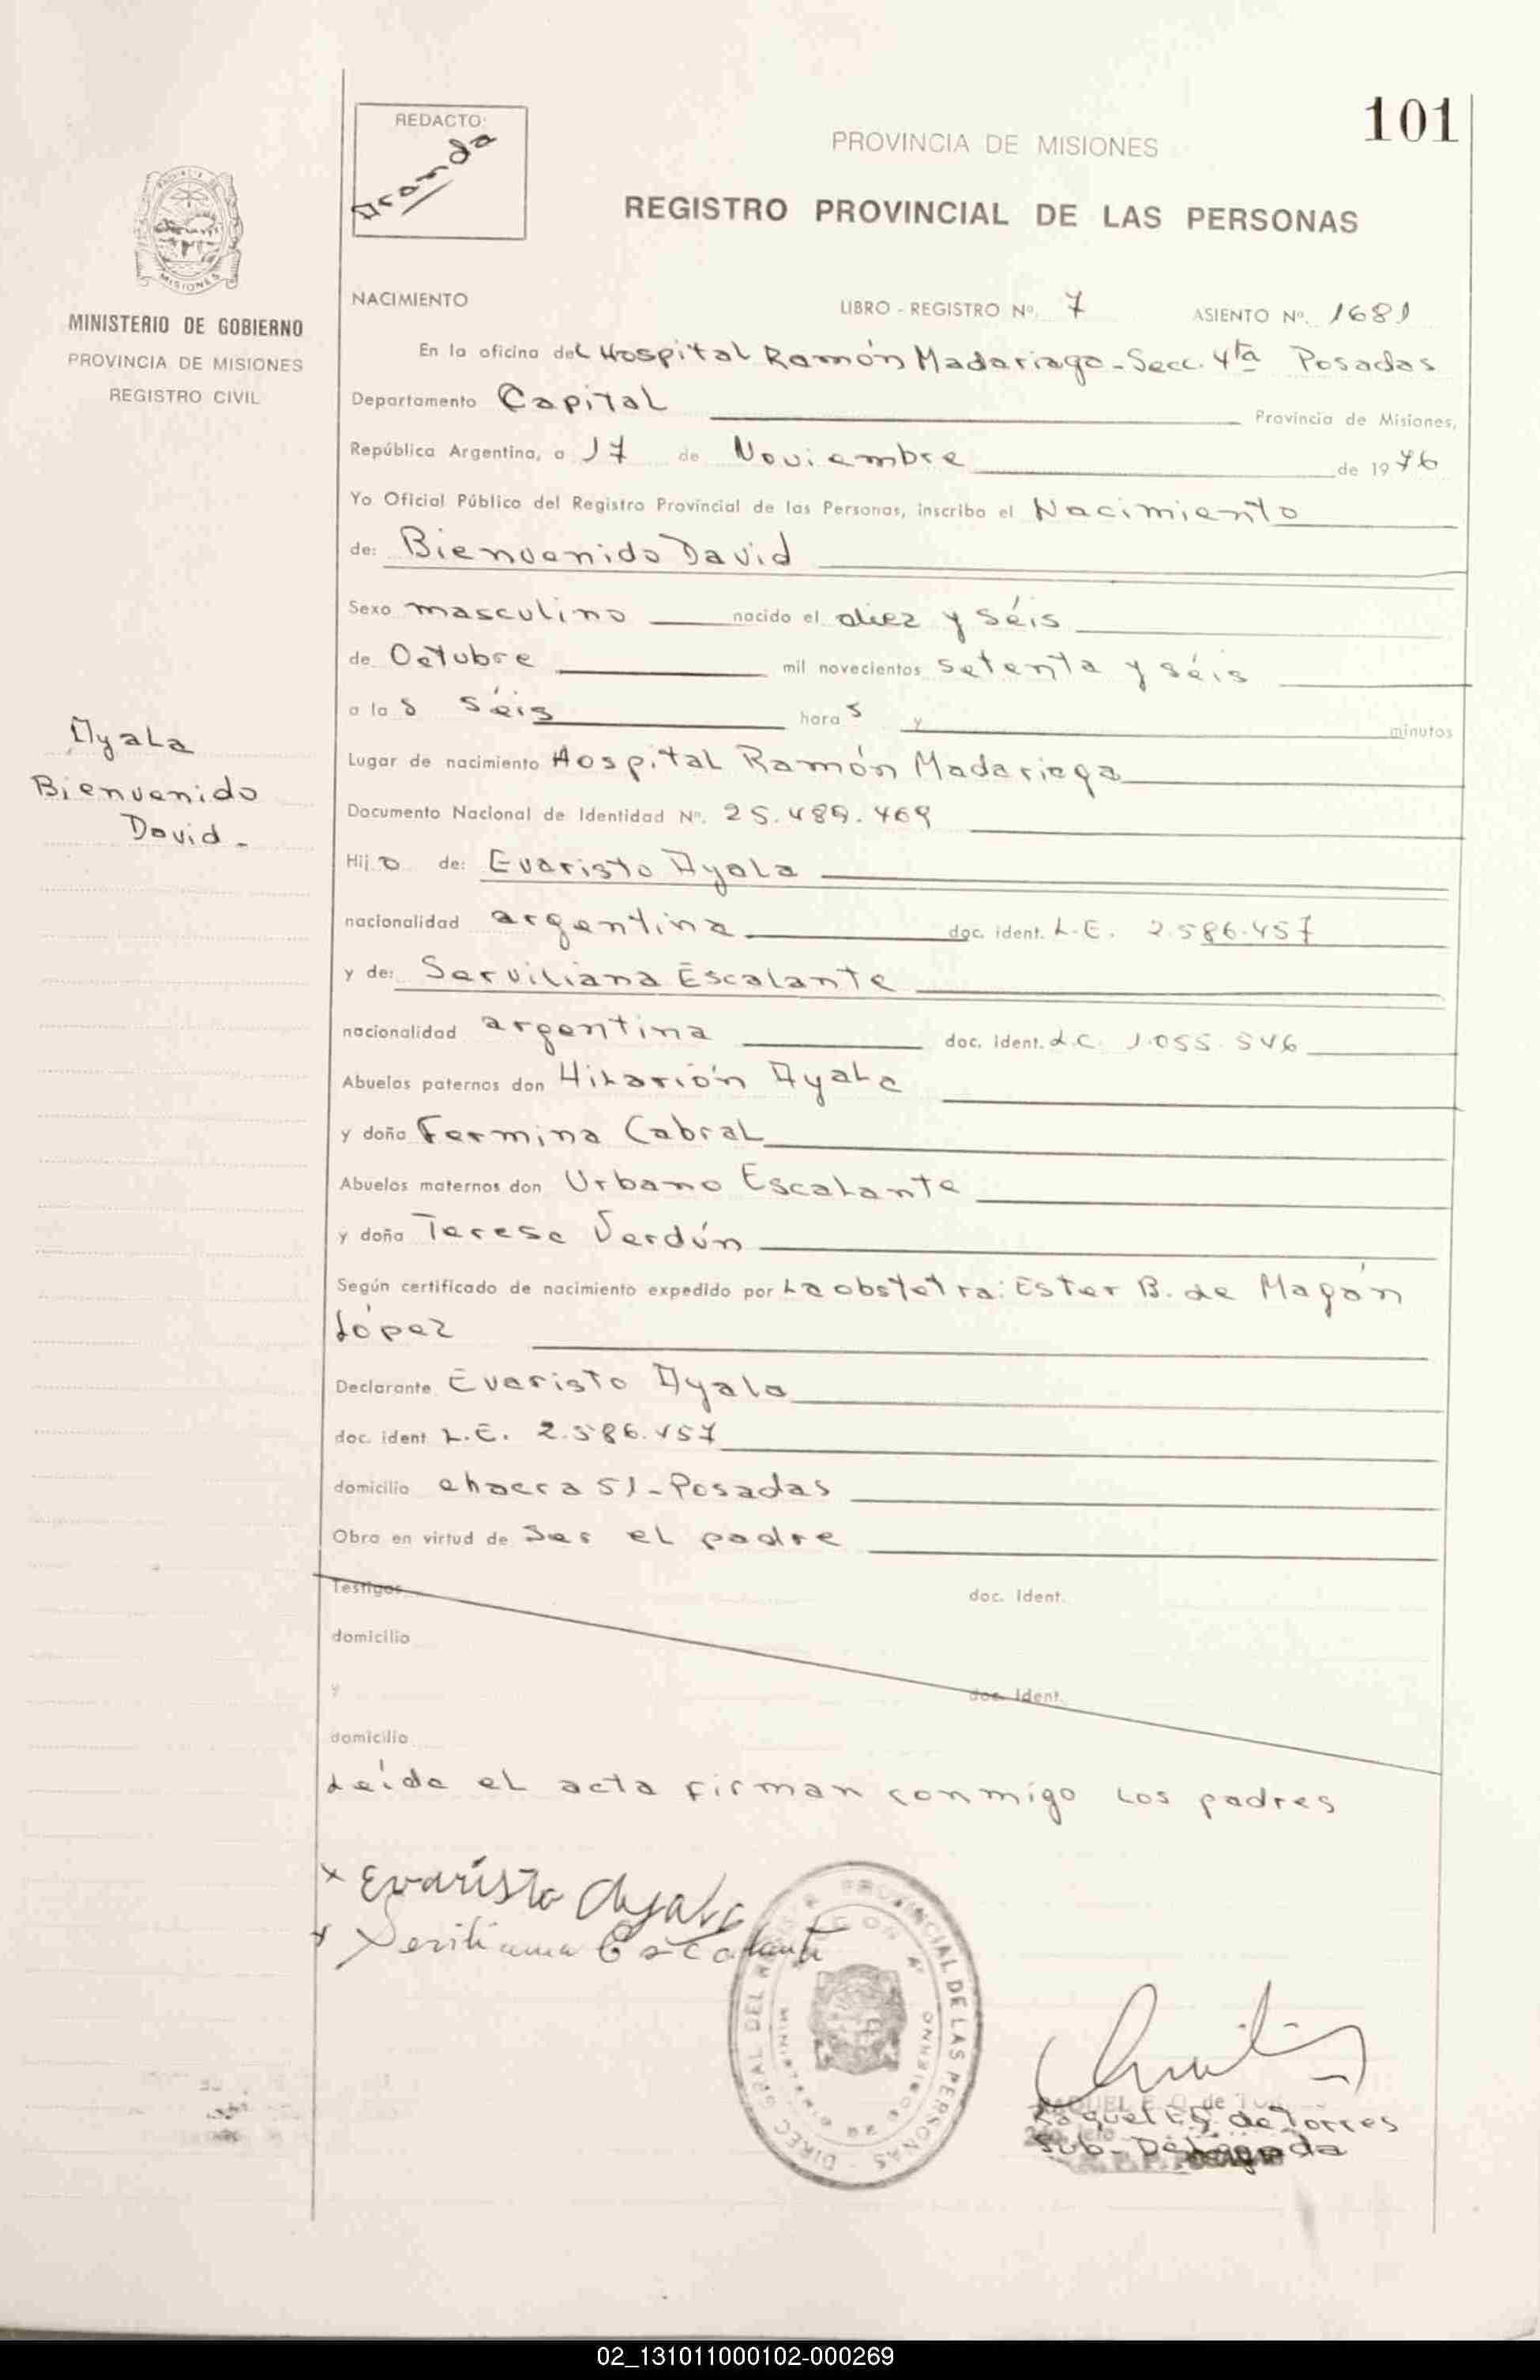 101
REDACTO:
Aranda
PROVINCIA DE MISIONES
REGISTRO PROVINCIAL DE LAS PERSONAS
MINISTERIO DE GOBIERNO
PROVINCIA DE MISIONES
REGISTRO CIVIL
NACIMIENTO LIBRO - REGISTRO Nº. 7 ASIENTO Nº. 1681
En la oficina del Hospital Ramón Madariaga - Secc. 4ta Posadas
Departamento Capital Provincia de Misiones,
República Argentina, a 17 de Noviembre de 1976
Yo Oficial Público del Registro Provincial de las Personas, inscribo el Nacimiento
de: Bienvenido David
Sexo masculino nacido el diez y séis
de Octubre mil novecientos setenta y séis
a las séis horas y minutos
Ayala
Bienvenido
David.-
Lugar de nacimiento Hospital Ramón Madariaga
Documento Nacional de Identidad Nº. 25.489.469
Hijo de: Evaristo Ayala
nacionalidad argentina doc. ident. L.E. 2.586.457
y de: Serviliana Escalante
nacionalidad argentina doc. ident. L.C. 1.055.546
Abuelos paternos don Hilarión Ayala
y doña Fermina Cabral
Abuelos maternos don Urbano Escalante
y doña Teresa Verdún
Según certificado de nacimiento expedido por La obstetra: Ester B. de Magán
López
Declarante Evaristo Ayala
doc. ident L.E. 2.586.457
domicilio chacra 51 - Posadas
Obra en virtud de Ser el padre
Testigos doc. Ident.
domicilio
y doc. Ident.
domicilio
Leída el acta firman conmigo los padres
x Evaristo Ayala
x Serviliana Escalante
DIREC. GRAL. DEL REGISTRO PROVINCIAL DE LAS PERSONAS
MINISTERIO DE GOBIERNO
Raquel E. de Torres
Sub-Delegada
02_131011000102-000269